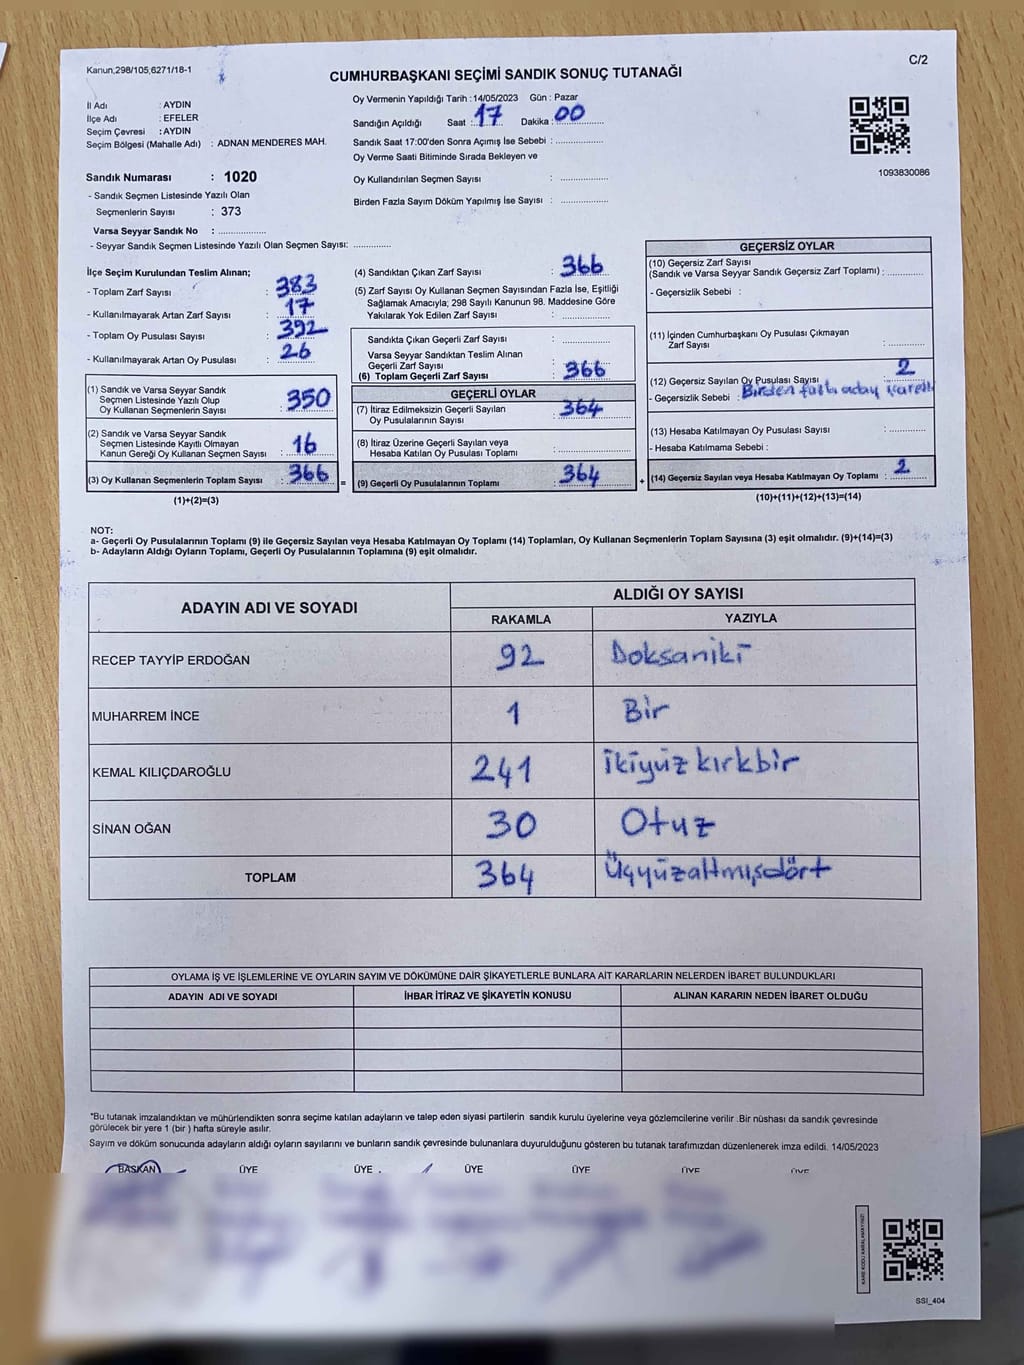 Kanun,298/105,6271/18-1
C/2
CUMHURBAŞKANI SEÇİMİ SANDIK SONUÇ TUTANAĞI
İl Adı : AYDIN
İlçe Adı : EFELER
Seçim Çevresi : AYDIN
Seçim Bölgesi (Mahalle Adı) : ADNAN MENDERES MAH.
Sandık Numarası : 1020
- Sandık Seçmen Listesinde Yazılı Olan
Seçmenlerin Sayısı : 373
Varsa Seyyar Sandık No : ..................
- Seyyar Sandık Seçmen Listesinde Yazılı Olan Seçmen Sayısı: ..............
Oy Vermenin Yapıldığı Tarih : 14/05/2023 Gün : Pazar
Sandığın Açıldığı Saat : 17 Dakika : 00
Sandık Saat 17:00'den Sonra Açımış İse Sebebi : ..................
Oy Verme Saati Bitiminde Sırada Bekleyen ve
Oy Kullandırılan Seçmen Sayısı : ..................
Birden Fazla Sayım Döküm Yapılmış İse Sayısı : ..................
1093830086
İlçe Seçim Kurulundan Teslim Alınan;
- Toplam Zarf Sayısı : 383
- Kullanılmayarak Artan Zarf Sayısı : 17
- Toplam Oy Pusulası Sayısı : 392
- Kullanılmayarak Artan Oy Pusulası : 26
(1) Sandık ve Varsa Seyyar Sandık
Seçmen Listesinde Yazılı Olup
Oy Kullanan Seçmenlerin Sayısı : 350
(2) Sandık ve Varsa Seyyar Sandık
Seçmen Listesinde Kayıtlı Olmayan
Kanun Gereği Oy Kullanan Seçmen Sayısı : 16
(3) Oy Kullanan Seçmenlerin Toplam Sayısı : 366 =
(1)+(2)=(3)
(4) Sandıktan Çıkan Zarf Sayısı : 366
(5) Zarf Sayısı Oy Kullanan Seçmen Sayısından Fazla İse, Eşitliği
Sağlamak Amacıyla; 298 Sayılı Kanunun 98. Maddesine Göre
Yakılarak Yok Edilen Zarf Sayısı : ..................
Sandıkta Çıkan Geçerli Zarf Sayısı : ..................
Varsa Seyyar Sandıktan Teslim Alınan
Geçerli Zarf Sayısı : ..................
(6) Toplam Geçerli Zarf Sayısı : 366
GEÇERLİ OYLAR
(7) İtiraz Edilmeksizin Geçerli Sayılan
Oy Pusulalarının Sayısı : 364
(8) İtiraz Üzerine Geçerli Sayılan veya
Hesaba Katılan Oy Pusulası Toplamı : ..................
(9) Geçerli Oy Pusulalarının Toplamı : 364 +
GEÇERSİZ OYLAR
(10) Geçersiz Zarf Sayısı
(Sandık ve Varsa Seyyar Sandık Geçersiz Zarf Toplamı) : ............
- Geçersizlik Sebebi :
(11) İçinden Cumhurbaşkanı Oy Pusulası Çıkmayan
Zarf Sayısı : ............
(12) Geçersiz Sayılan Oy Pusulası Sayısı : 2
- Geçersizlik Sebebi : Birden fazla aday işaretli
(13) Hesaba Katılmayan Oy Pusulası Sayısı : ............
- Hesaba Katılmama Sebebi :
(14) Geçersiz Sayılan veya Hesaba Katılmayan Oy Toplamı : 2
(10)+(11)+(12)+(13)=(14)
NOT:
a- Geçerli Oy Pusulalarının Toplamı (9) ile Geçersiz Sayılan veya Hesaba Katılmayan Oy Toplamı (14) Toplamları, Oy Kullanan Seçmenlerin Toplam Sayısına (3) eşit olmalıdır. (9)+(14)=(3)
b- Adayların Aldığı Oyların Toplamı, Geçerli Oy Pusulalarının Toplamına (9) eşit olmalıdır.
ADAYIN ADI VE SOYADI ALDIĞI OY SAYISI
RAKAMLA YAZIYLA
RECEP TAYYİP ERDOĞAN 92 Doksaniki
MUHARREM İNCE 1 Bir
KEMAL KILIÇDAROĞLU 241 ikiyüz kırkbir
SİNAN OĞAN 30 Otuz
TOPLAM 364 Üçyüzaltmışdört
OYLAMA İŞ VE İŞLEMLERİNE VE OYLARIN SAYIM VE DÖKÜMÜNE DAİR ŞİKAYETLERLE BUNLARA AİT KARARLARIN NELERDEN İBARET BULUNDUKLARI
ADAYIN ADI VE SOYADI İHBAR İTİRAZ VE ŞİKAYETİN KONUSU ALINAN KARARIN NEDEN İBARET OLDUĞU
*Bu tutanak imzalandıktan ve mühürlendikten sonra seçime katılan adayların ve talep eden siyasi partilerin sandık kurulu üyelerine veya gözlemcilerine verilir .Bir nüshası da sandık çevresinde
görülecek bir yere 1 (bir ) hafta süreyle asılır.
Sayım ve döküm sonucunda adayların aldığı oyların sayılarını ve bunların sandık çevresinde bulunanlara duyurulduğunu gösteren bu tutanak tarafımızdan düzenlenerek imza edildi. 14/05/2023
BAŞKAN ÜYE ÜYE ÜYE ÜYE ÜYE ÜYE
KARE KODU KARALAMAYINIZ!
SSI_404